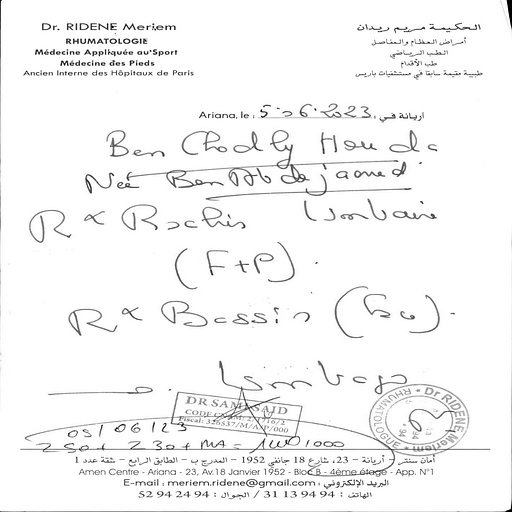 Dr. RIDENE Meriem
RHUMATOLOGIE
Médecine Appliquée au Sport
Médecine des Pieds
Ancien Interne des Hôpitaux de Paris
الحكيمة مريم ريدان
أمراض العظام والمفاصل
الطب الرياضي
طب الأقدام
طبيبة مقيمة سابقا في مستشفيات باريس
Ariana, le : 5.06.2023 أريانة في,
Ben Chodly Houda
Née Ben Abdeljaoued
R x Rachis Lombaire
(F+P).
R x Bassin (  ).
Lombago
DR SAMI SAID
05/06/23
RHUMATOLOGIE • Dr RIDENE Meriem
أمان سنتر - أريانة - 23، شارع 18 جانفي 1952 - المدرج ب - الطابق الرابع - شقة عدد 1
Amen Centre - Ariana - 23, Av.18 Janvier 1952 - Bloc B - 4ème étage - App. N°1
E-mail : meriem.ridene@gmail.com : البريد الإلكتروني
الهاتف : 94 94 13 31 / الجوال : 94 94 24 52